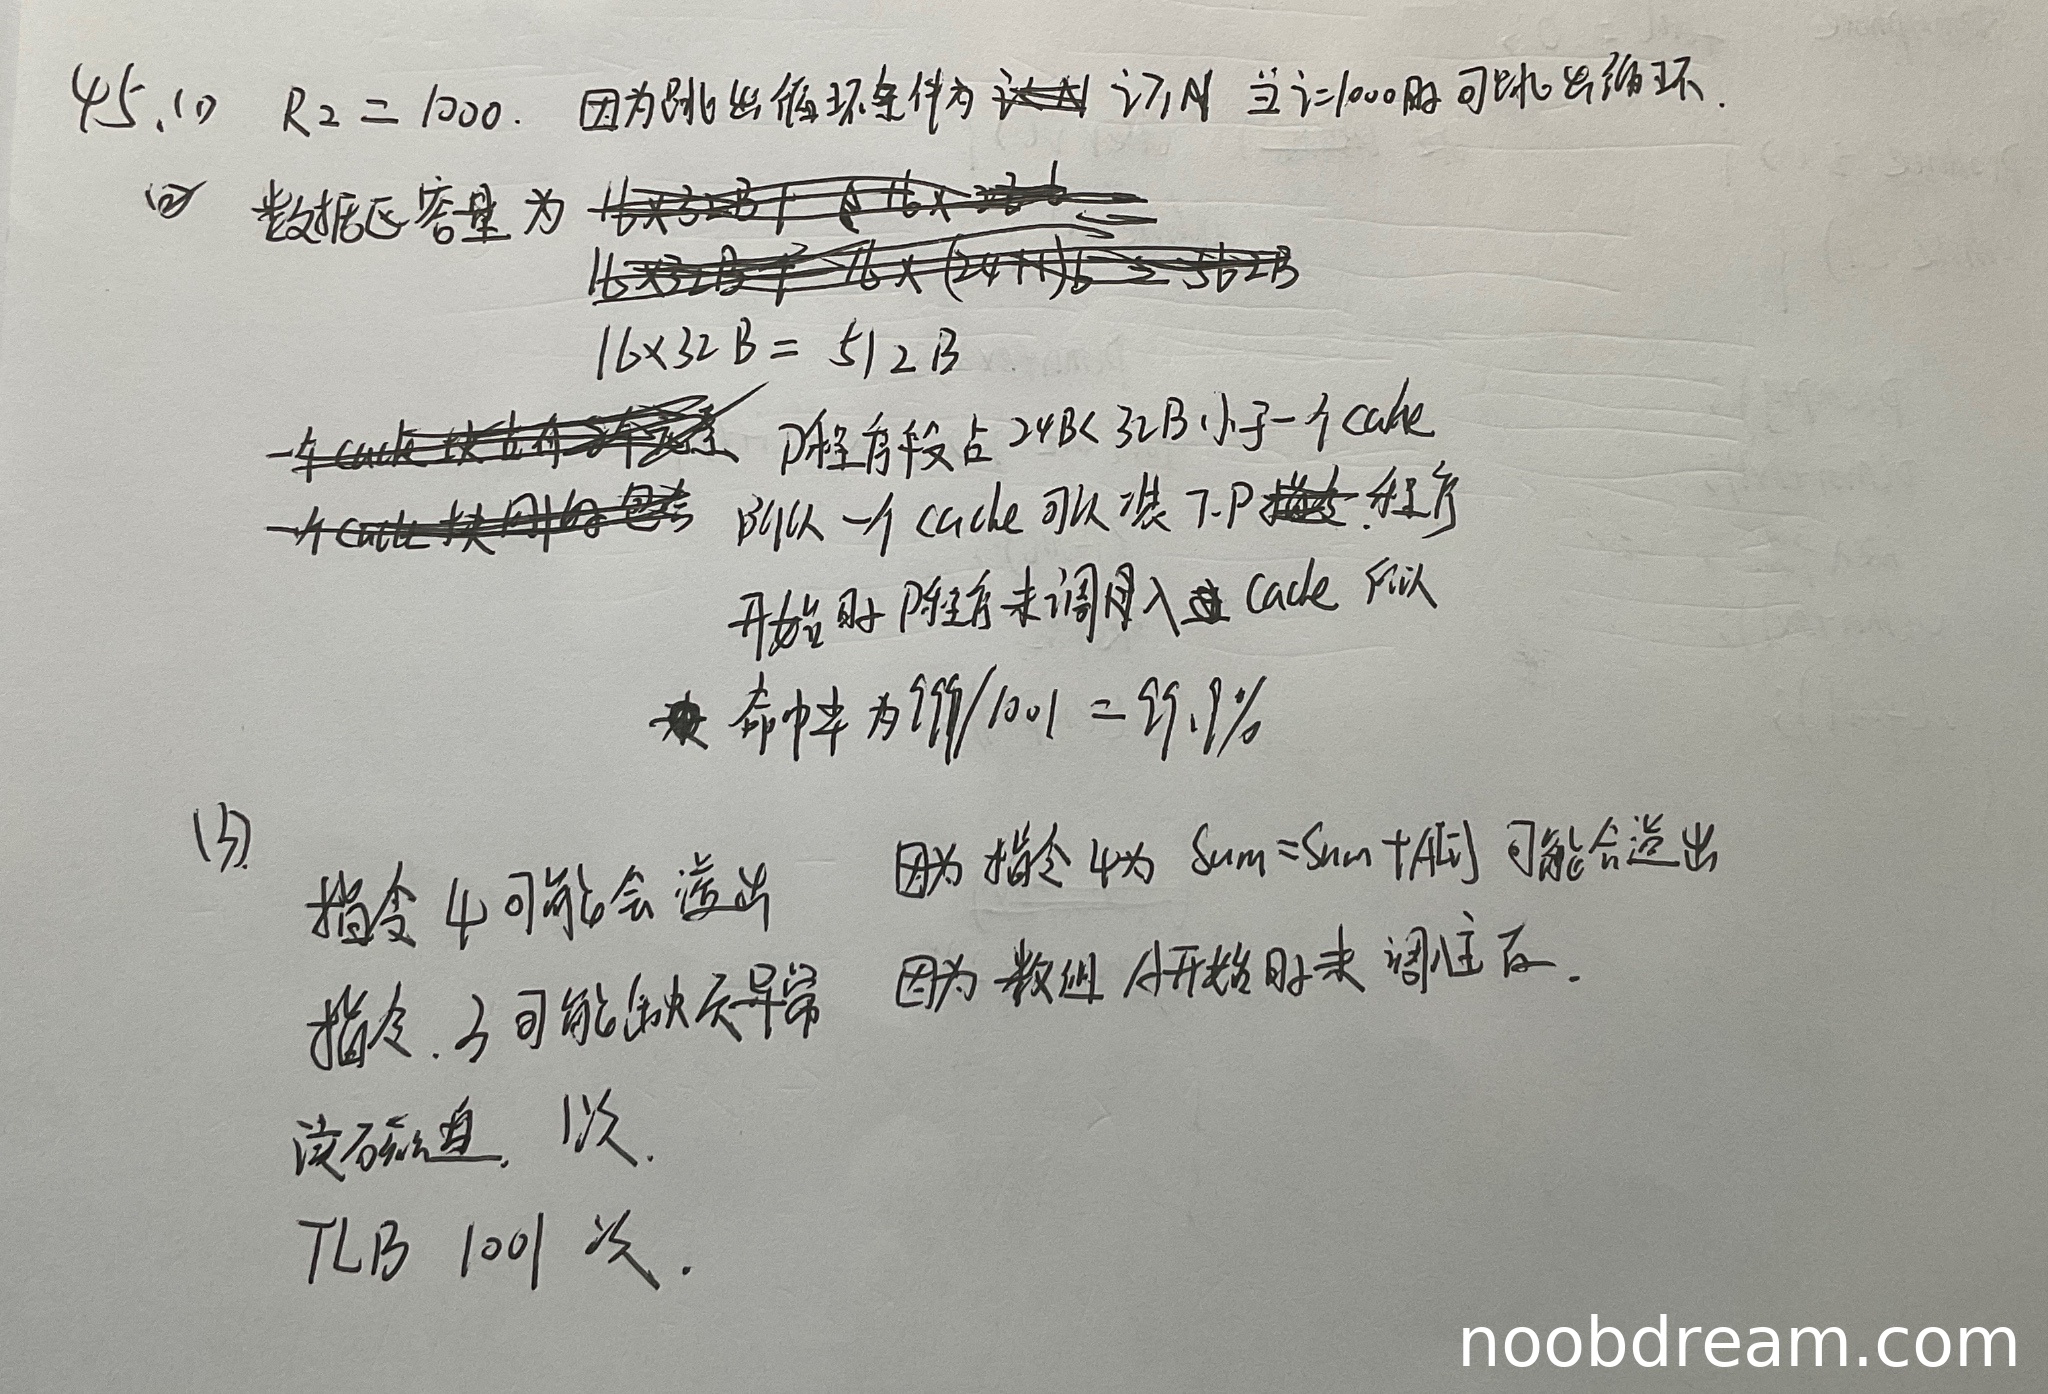 45.(1) R2 = 1000. 因为跳出循环条件为 i≥N 当i=1000时可跳出循环.
(2) 数据区容量为
16×32B = 512B
P程序段占 24B<32B 小于一个 cache
所以一个 cache 可以装下P程序
开始时P程序未调入 cache 所以
命中率为 999/1001 = 99.9%
(3)
指令 4 可能会溢出 因为指令 4为 Sum=Sum+A[i] 可能会溢出
指令.3 可能缺页异常 因为数组 A开始时未调主存.
读磁盘. 1次.
TLB 1001 次.
noobdream.com